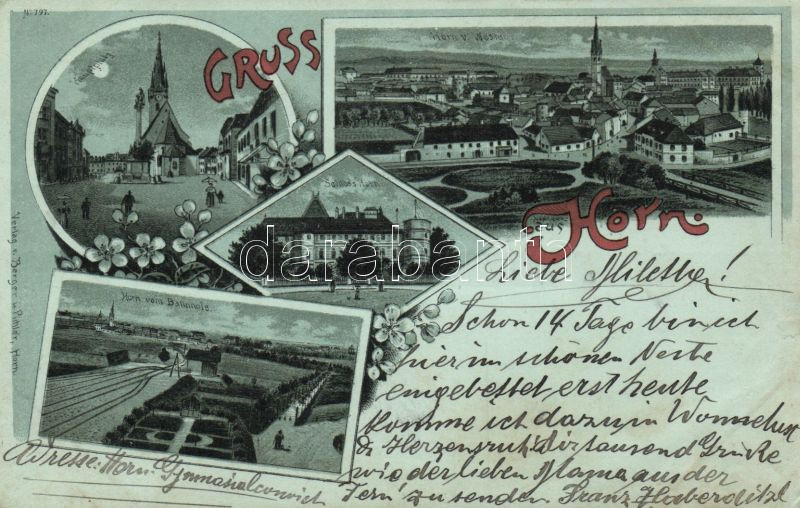 No 797.
GRUSS
aus Horn.
Horn v.
Schloss Horn
Horn vom Bahnhofe.
Verlag v. Berger, Horn.
darabanth
Liebe !
Schon 14 Tage bin ich
hier im schönen Neste
eingebettet erst heute
komme ich dazu in
& tausend Grüße
wie der lieben Mama aus der
Fern' zu senden Franz Haberditzl
Adresse: Horn: